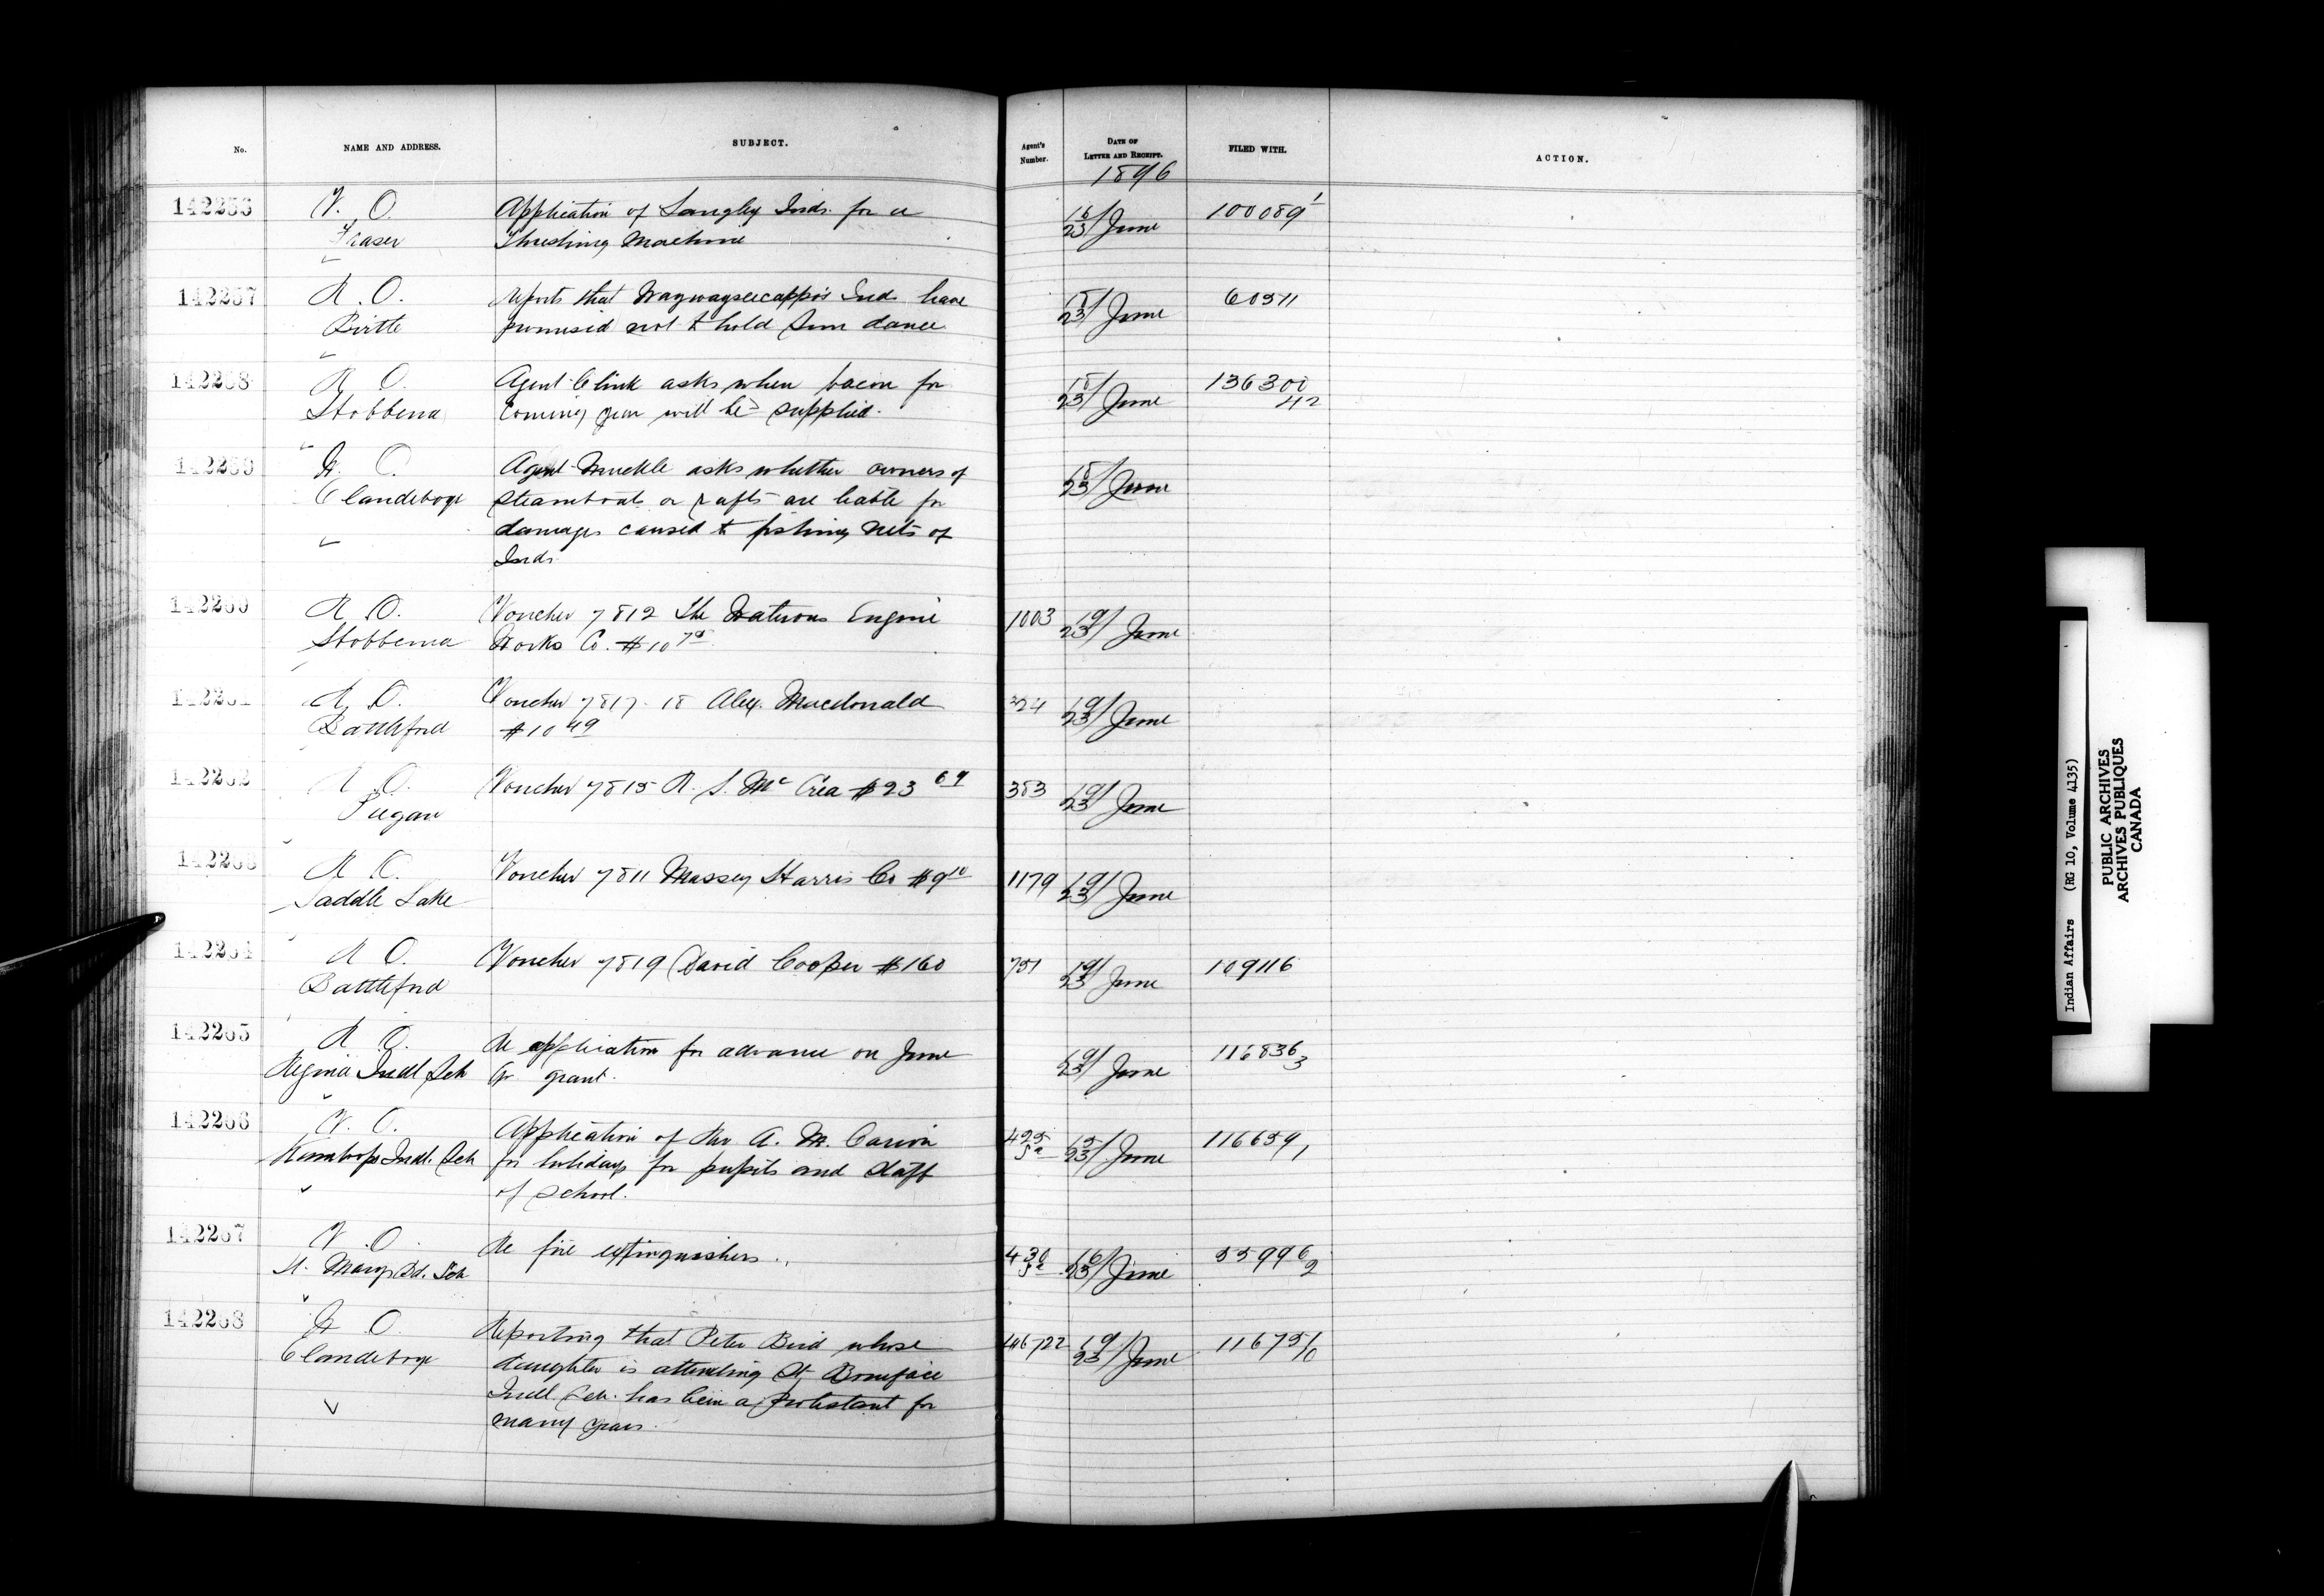 No.
NAME AND ADDRESS.
SUBJECT.
Agent's Number.
DATE OF LETTER AND RECEIPT.
FILED WITH.
ACTION.
1896
V. O.
Fraser
Application of Langley Inds. for a
Threshing Machine
16/23 June
100089 1
142257
R. O.
Birtle
Reports that Waywayseecappo's Inds. have
promised not to hold Sun dance
23/ June
60511
142258
R. O.
Hobbema
Agent Clink asks when bacon for
coming year will be supplied.
23/ June
136300
42
142259
W. O.
Clandeboye
Agent Muckle asks whether owners of
steamboats or rafts are liable for
damages caused to fishing nets of
Inds
23/ June
142260
R. O.
Hobbema
Voucher 7812 The Waterous Engine
Works Co. $10
1003
19/23 June
142261
R. O.
Battleford
Voucher 7817-18 Alex. Macdonald
$10 49
324
19/23 June
142262
R. O.
Piegan
Voucher 7815 R. S. McCrea $23 69
383
19/23 June
142263
R. O.
Saddle Lake
Voucher 7811 Massey Harris Co $9 10
1179
19/23 June
142264
R. O.
Battleford
Voucher 7819 David Cooper $160
751
19/23 June
109116
142265
R. O.
Regina Indl Sch
Re application for advance on June
Qr. grant.
19/23 June
116836
3
142266
V. O.
Kamloops Indl. Sch
Application of Rev A. M. Carion
for holidays for pupils and staff
of school.
425
15/23 June
116659
1
142267
V. O.
St. Marys Bd. Sch
Re fire extinguishers.
430
16/23 June
55996
2
142268
W. O.
Clandeboye
Reporting that Peter Bird whose
daughter is attending St Boniface
Indl. Sch. has been a Protestant for
many years.
146/722
19/23 June
11675 1/0
Indian Affairs (RG 10, Volume 4135)
PUBLIC ARCHIVES
ARCHIVES PUBLIQUES
CANADA